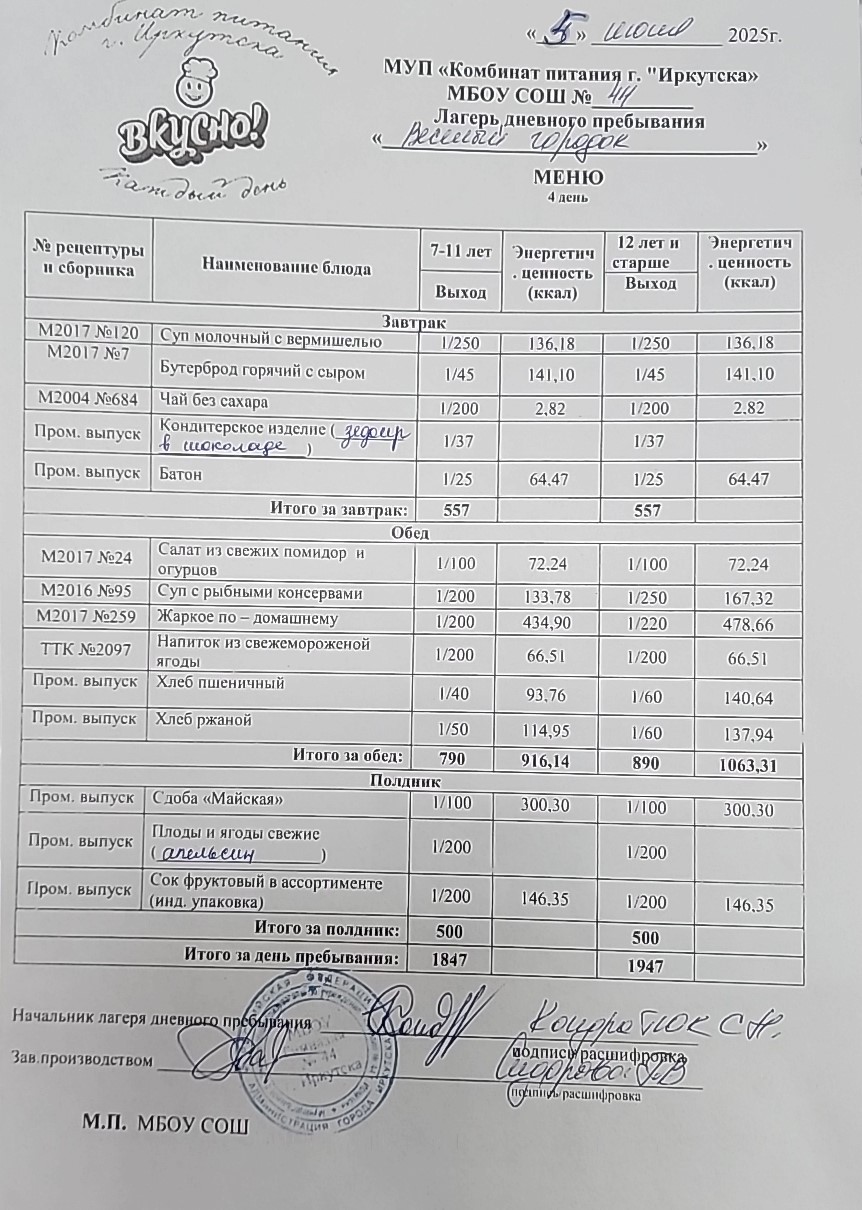 Комбинат питания
г. Иркутска
Вкусно!
Каждый день
« 5 » июня 2025г.
МУП «Комбинат питания г. "Иркутска»
МБОУ СОШ № 44
Лагерь дневного пребывания
« Веселый городок »
МЕНЮ
4 день
№ рецептуры и сборника Наименование блюда 7-11 лет Выход Энергетич. ценность (ккал) 12 лет и старше Выход Энергетич. ценность (ккал)
Завтрак
М2017 №120 Суп молочный с вермишелью 1/250 136,18 1/250 136,18
М2017 №7 Бутерброд горячий с сыром 1/45 141,10 1/45 141,10
М2004 №684 Чай без сахара 1/200 2,82 1/200 2,82
Пром. выпуск Кондитерское изделие ( зефир
в шоколаде ) 1/37 1/37
Пром. выпуск Батон 1/25 64,47 1/25 64,47
Итого за завтрак: 557 557
Обед
М2017 №24 Салат из свежих помидор и
огурцов 1/100 72,24 1/100 72,24
М2016 №95 Суп с рыбными консервами 1/200 133,78 1/250 167,32
М2017 №259 Жаркое по – домашнему 1/200 434,90 1/220 478,66
ТТК №2097 Напиток из свежемороженой
ягоды 1/200 66,51 1/200 66,51
Пром. выпуск Хлеб пшеничный 1/40 93,76 1/60 140,64
Пром. выпуск Хлеб ржаной 1/50 114,95 1/60 137,94
Итого за обед: 790 916,14 890 1063,31
Полдник
Пром. выпуск Сдоба «Майская» 1/100 300,30 1/100 300,30
Пром. выпуск Плоды и ягоды свежие
( апельсин ) 1/200 1/200
Пром. выпуск Сок фруктовый в ассортименте
(инд. упаковка) 1/200 146,35 1/200 146,35
Итого за полдник: 500 500
Итого за день пребывания: 1847 1947
Начальник лагеря дневного пребывания Кондратюк С.Н.
подпись/расшифровка
Зав.производством Сидорова
подпись/расшифровка
АДМИНИСТРАЦИЯ ГОРОДА ИРКУТСКА
МБОУ
№ 44
Иркутска
М.П. МБОУ СОШ